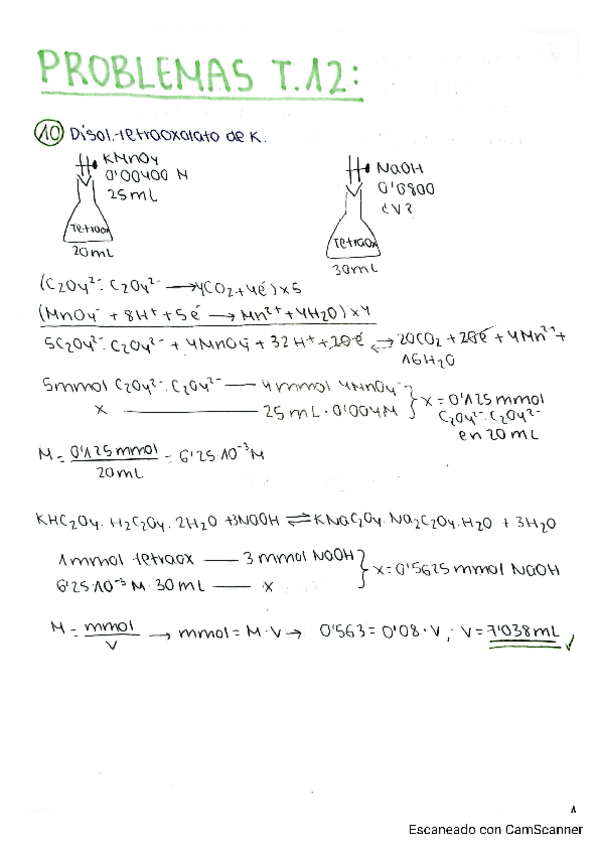 PROBLEMAS T.12:
10 Disol. tetraoxalato de K.
KMnO4
0'00400 M
25 mL
Tetraox
20mL
NaOH
0'0800
¿V?
TETRAOX
30mL
(C2O4²⁻·C2O4²⁻ → 4CO2 + 4é) x5
(MnO4⁻ + 8H⁺ + 5é → Mn²⁺ + 4H2O) x4
5C2O4²⁻·C2O4²⁻ + 4MnO4⁻ + 32H⁺ + 20é ⇄ 20CO2 + 20é + 4Mn²⁺ +
16H2O
5mmol C2O4²⁻·C2O4²⁻ — 4mmol 4MnO4⁻
x — 25mL·0'004M
x = 0'125 mmol
C2O4²⁻·C2O4²⁻
en 20mL
M = 0'125 mmol / 20mL = 6'25·10⁻³ M
KHC2O4·H2C2O4·2H2O + 3NaOH ⇌ KNaC2O4·Na2C2O4·H2O + 3H2O
1mmol tetraox — 3mmol NaOH
6'25·10⁻³ M·30mL — x
x = 0'5625 mmol NaOH
M = mmol / V → mmol = M·V → 0'563 = 0'08·V ; V = 7'038mL ✓
1
Escaneado con CamScanner